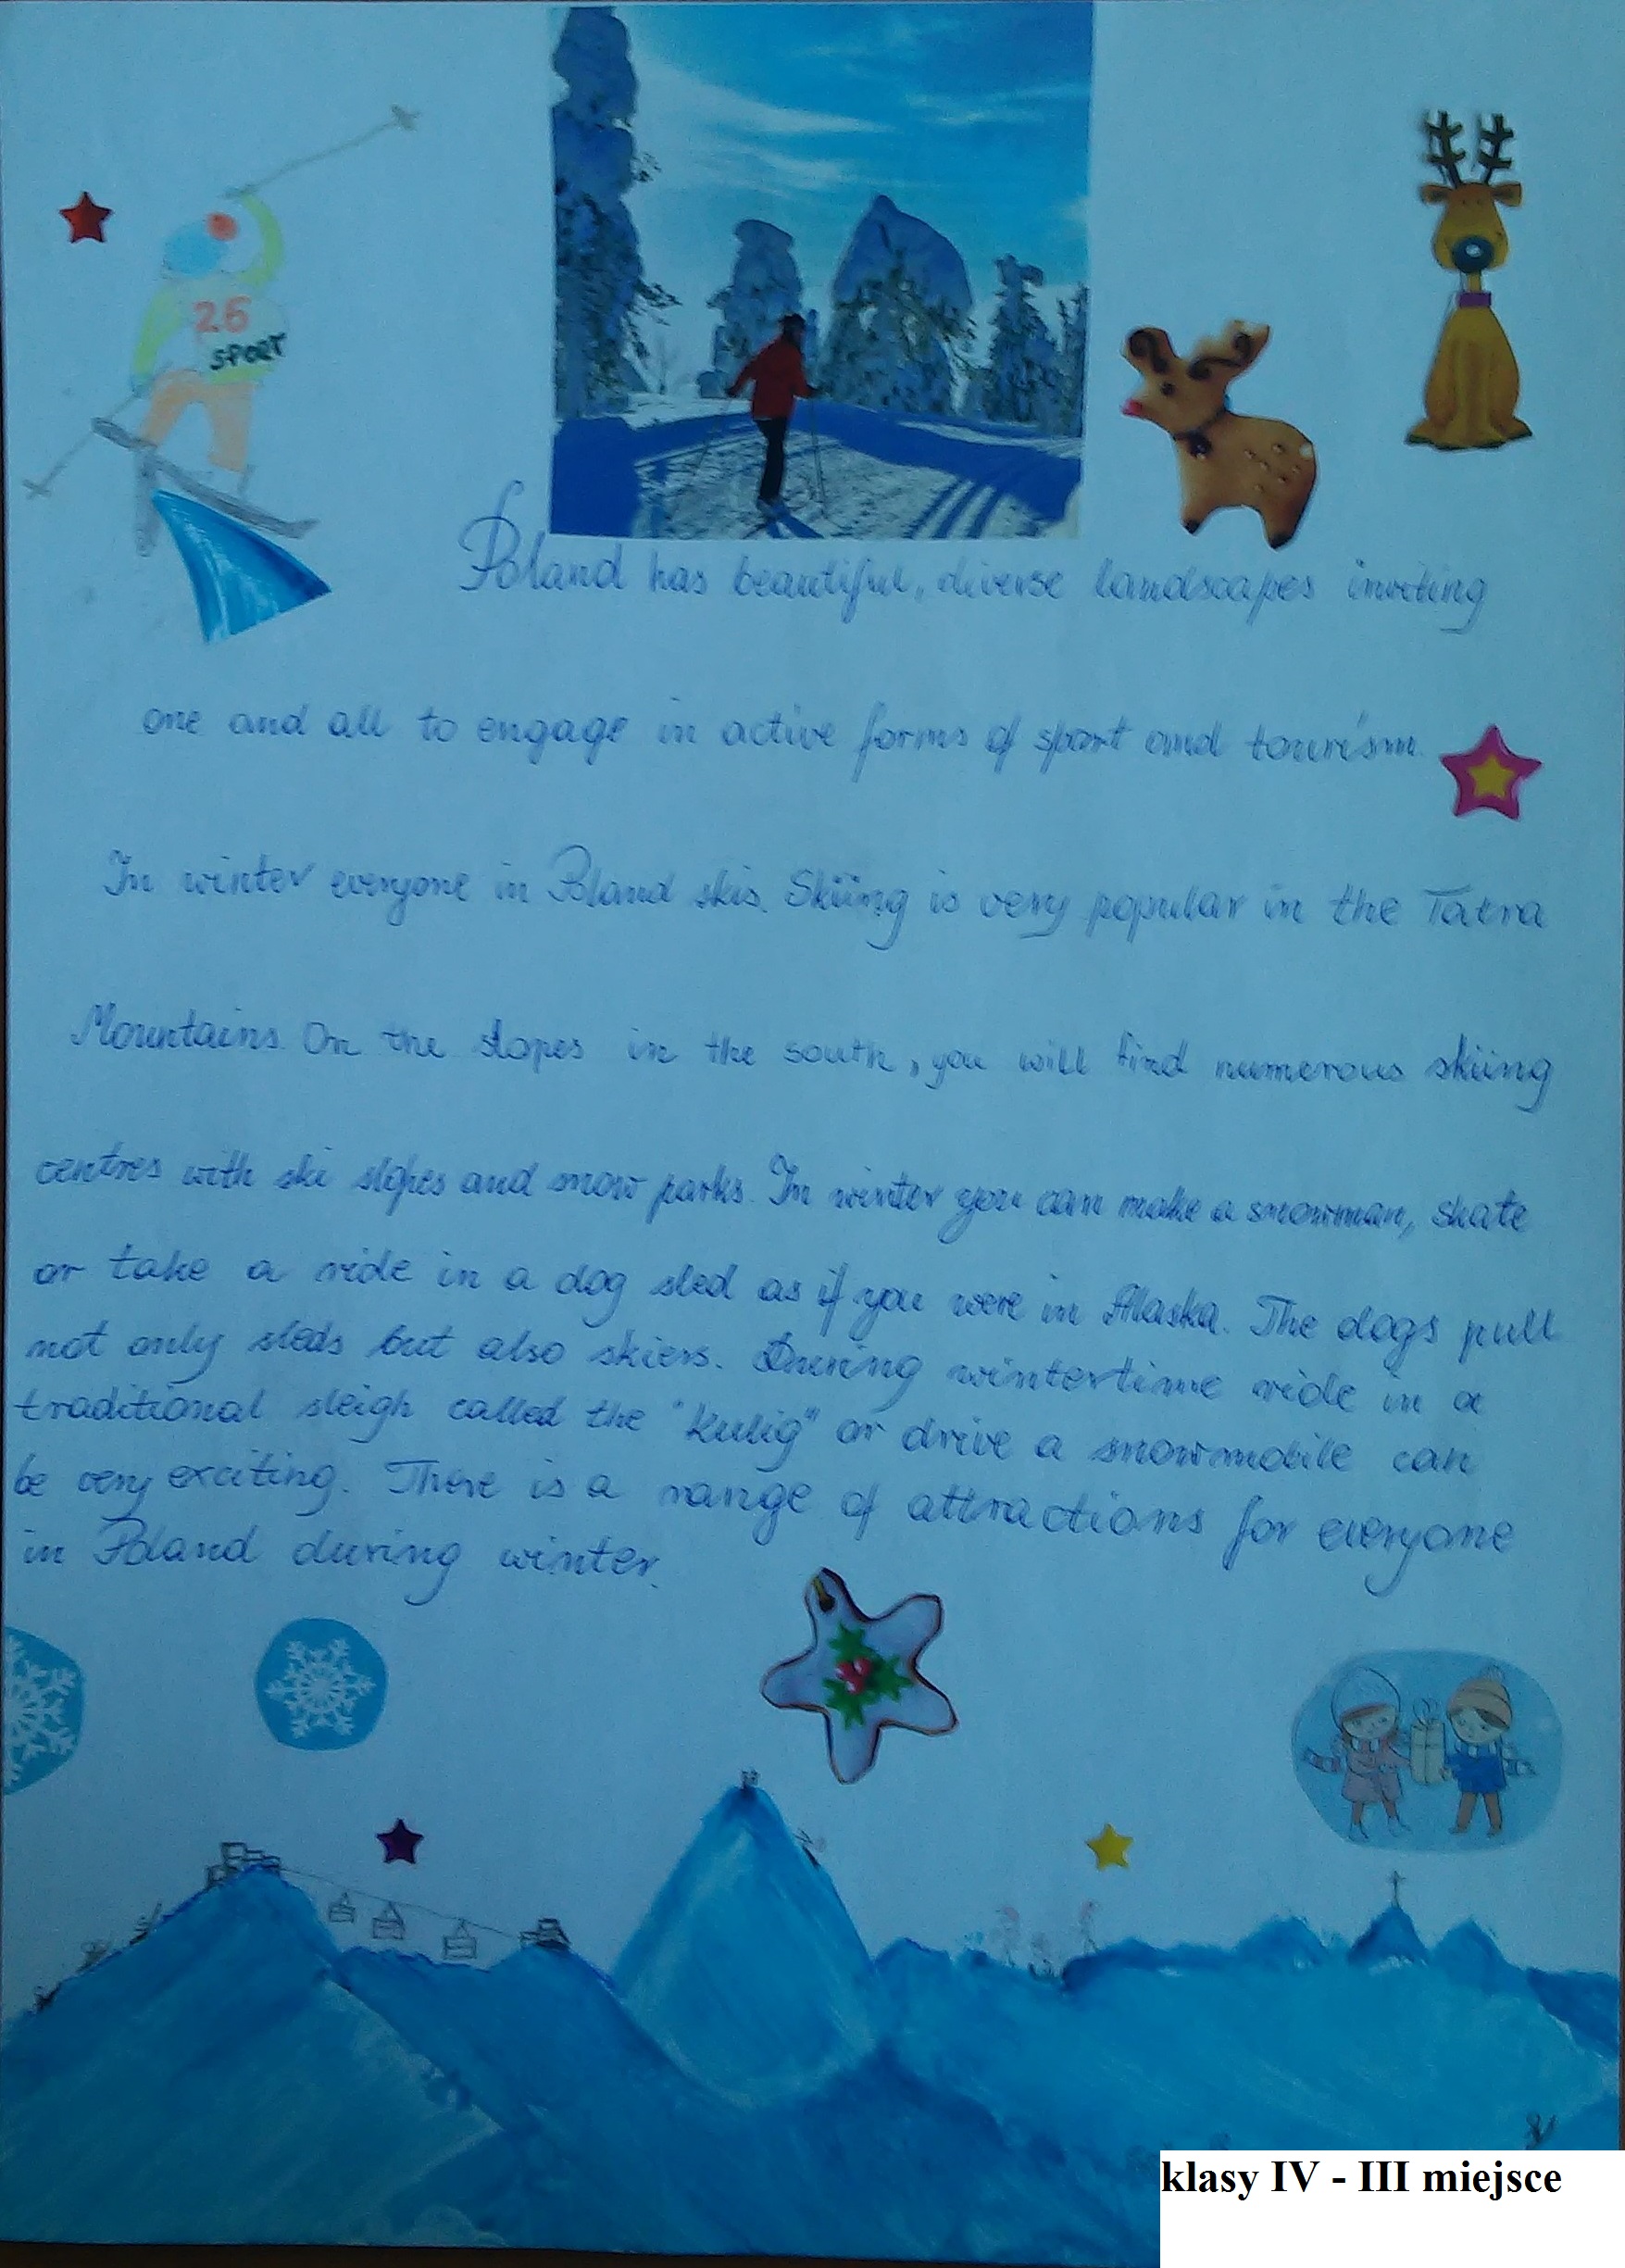 26
SPORT
Poland has beautiful, diverse landscapes inviting
one and all to engage in active forms of sport and tourism.
In winter everyone in Poland skis. Skiing is very popular in the Tatra
Mountains. On the slopes in the south, you will find numerous skiing
centres with ski slopes and snow parks. In winter you can make a snowman, skate
or take a ride in a dog sled as if you were in Alaska. The dogs pull
not only sleds but also skiers. During wintertime ride in a
traditional sleigh called the "Kulig" or drive a snowmobile can
be very exciting. There is a range of attractions for everyone
in Poland during winter.
klasy IV - III miejsce